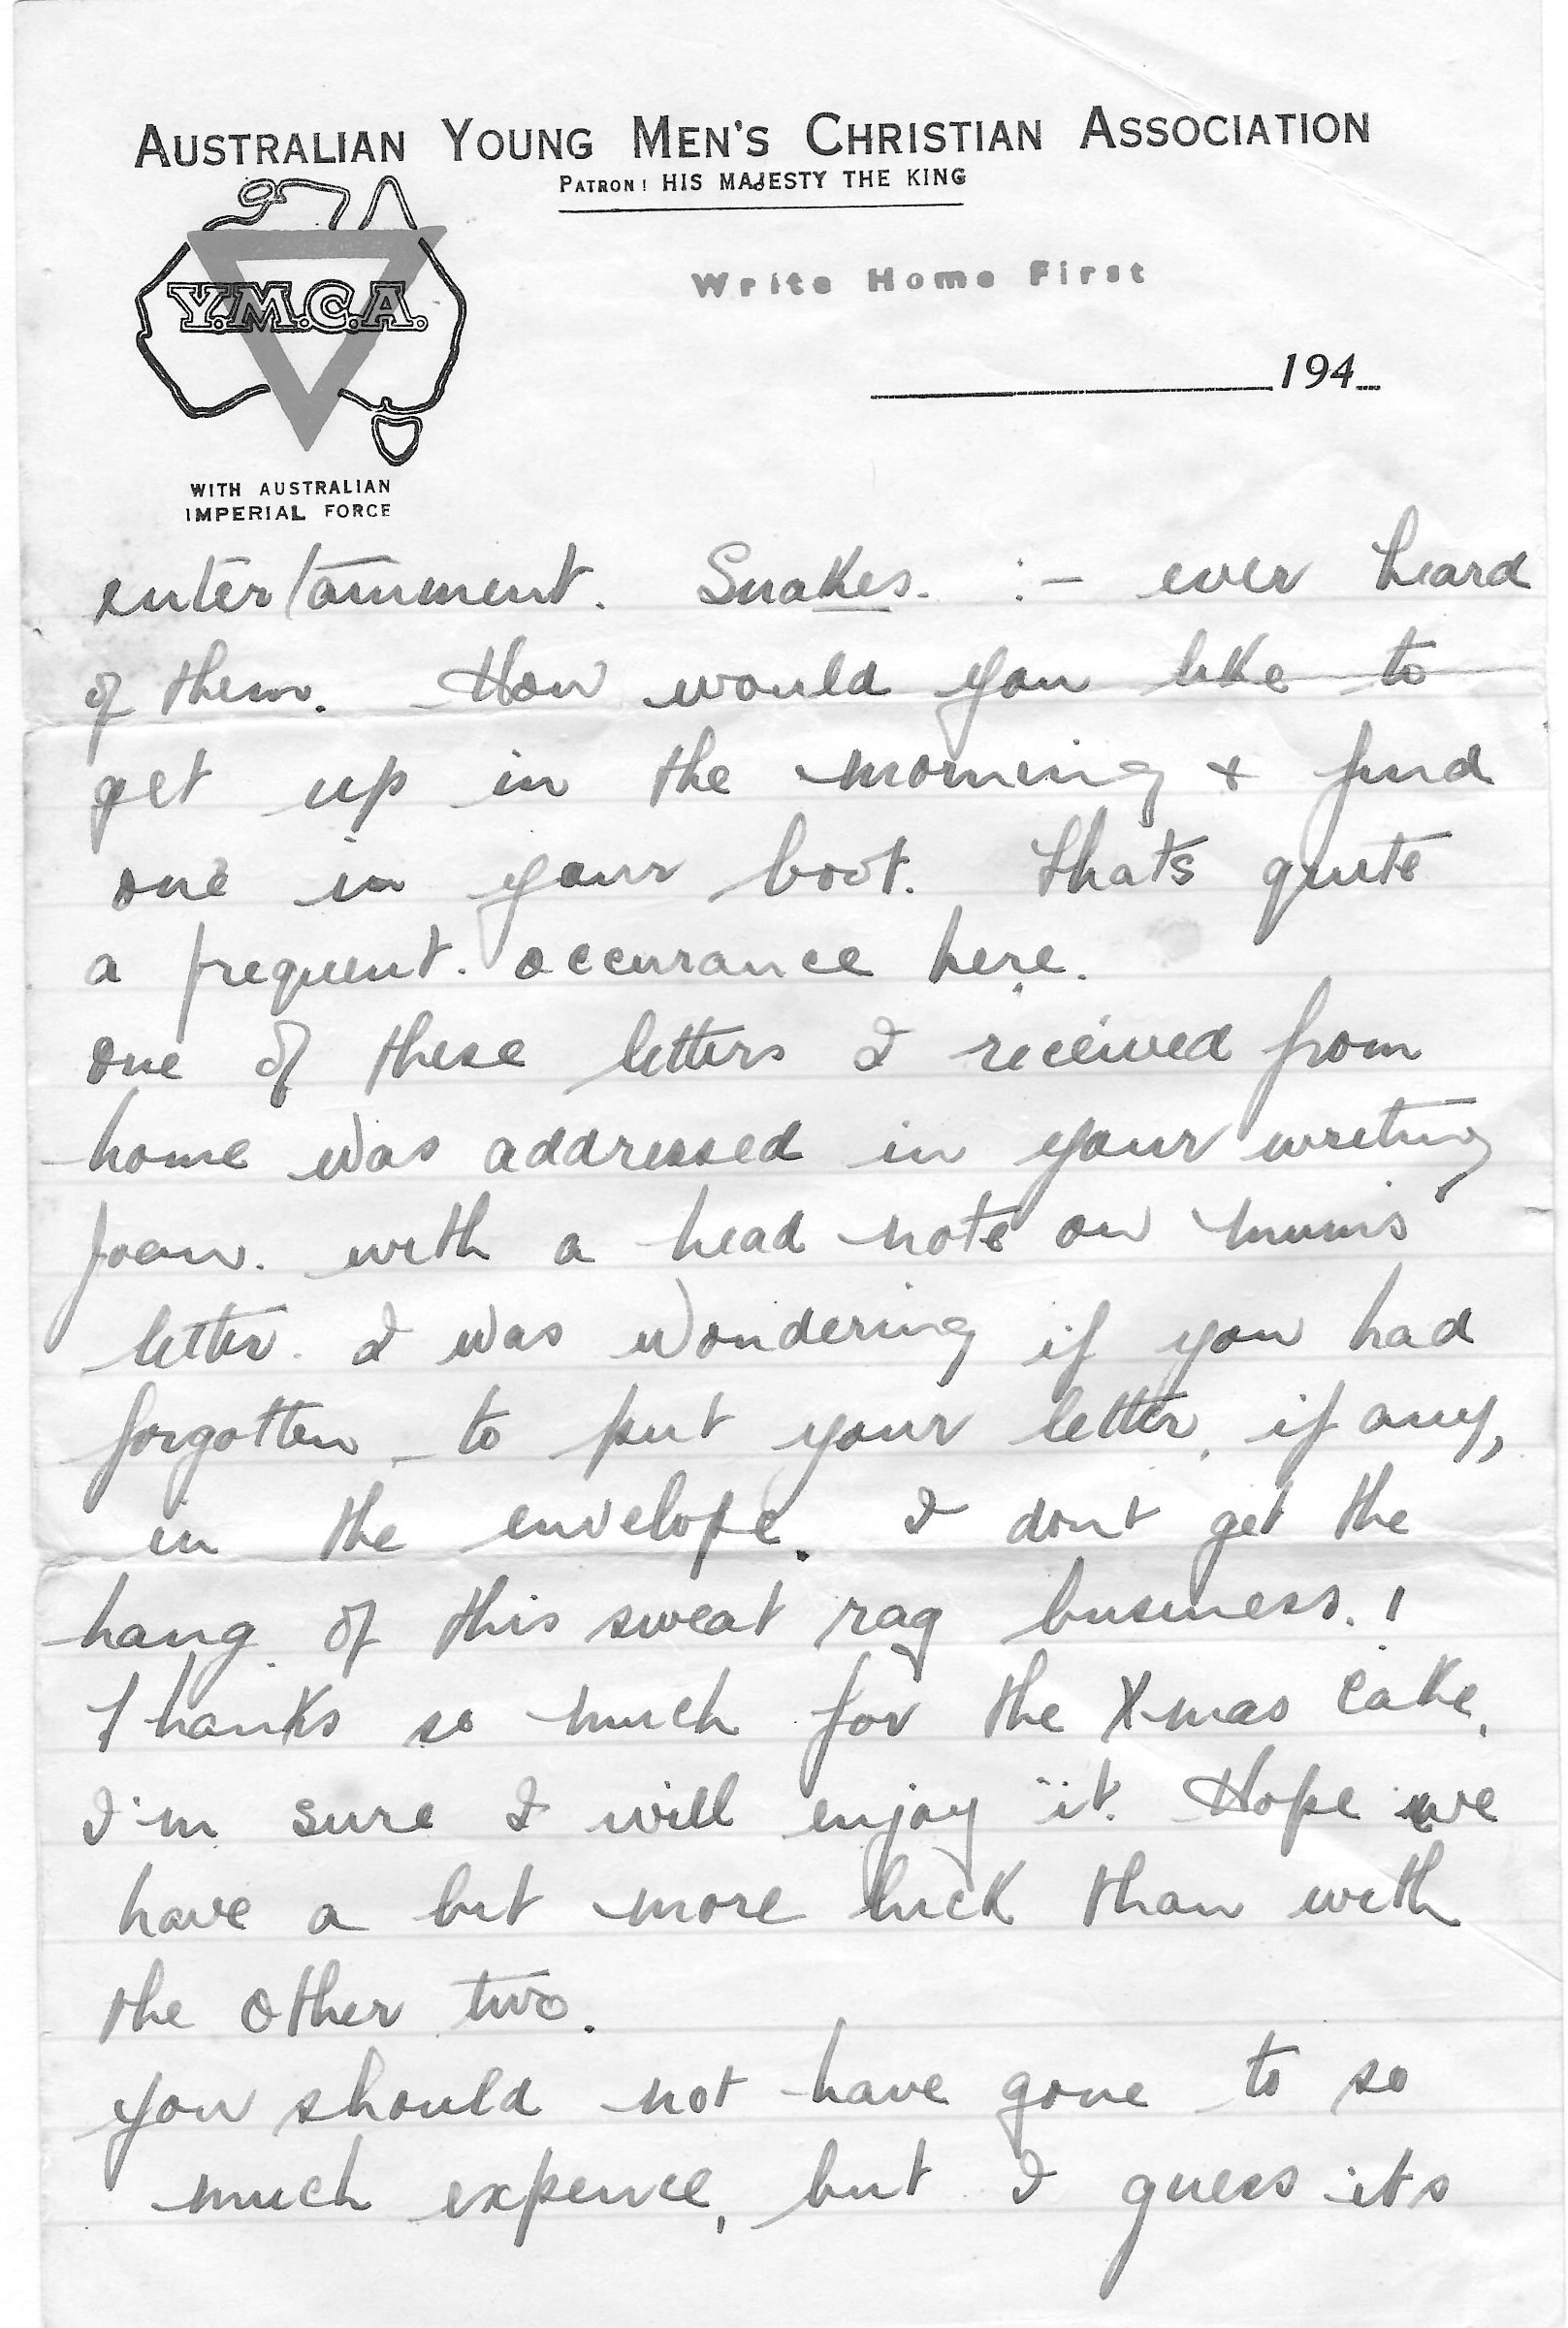 AUSTRALIAN YOUNG MEN'S CHRISTIAN ASSOCIATION
PATRON: HIS MAJESTY THE KING
Y.M.C.A.
Write Home First
194
WITH AUSTRALIAN
IMPERIAL FORCE
entertainment. Snakes. :- ever heard
of them. How would you like to
get up in the morning + find
one in your boot. thats quite
a frequent. occurance here.
one of these letters I received from
home was addressed in your writing
Joan. with a head note on mum's
letter. I was wondering if you had
forgotten to put your letter, if any,
in the envelope. I dont get the
hang of this sweat rag business.!
Thanks so much for the Xmas cake.
I'm sure I will enjoy it. Hope we
have a bit more luck than with
the other two.
you should not have gone to so
much expence, but I guess its